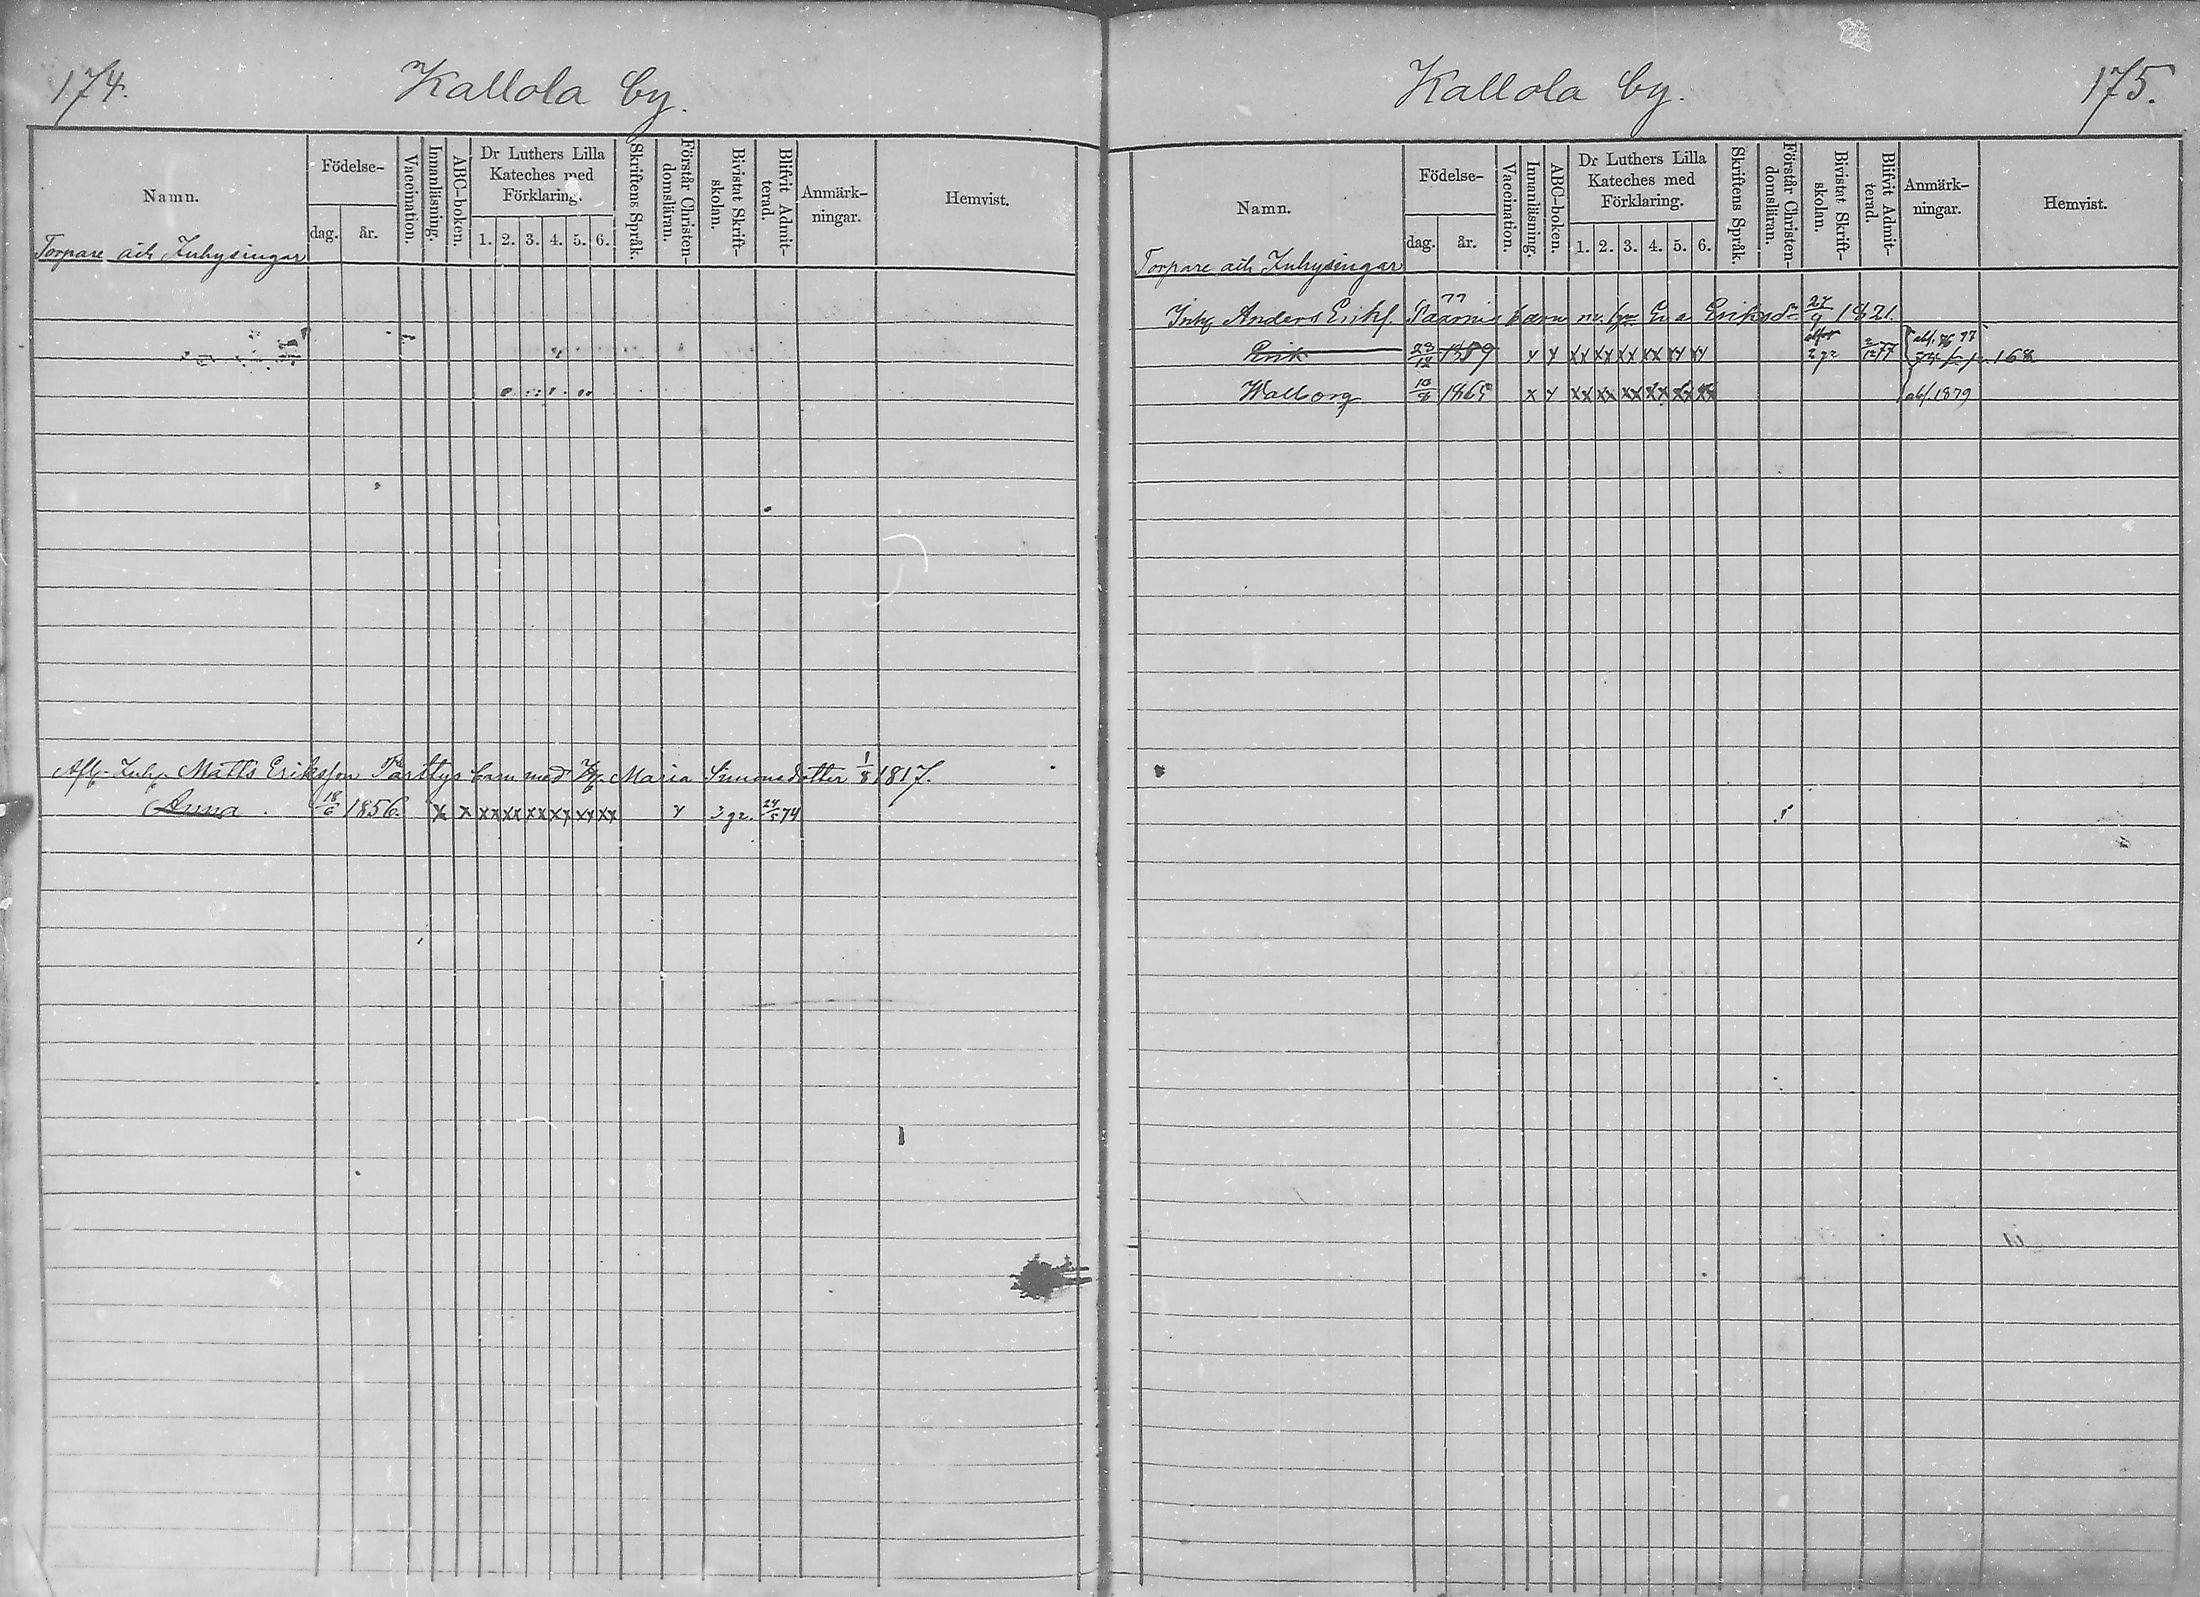 174.
Kallola by.
Namn.
Födelse-
dag.
år.
Vaccination.
Innanläsning.
ABC-boken.
Dr Luthers Lilla
Kateches med
Förklaring.
1. 2. 3. 4. 5. 6.
Skriftens Språk.
Förstår Christen-
domsläran.
Bivistat Skrift-
skolan.
Blifvit Admit-
terad.
Anmärk-
ningar.
Hemvist.
Torpare och Inhysingar
Afl. Inh. Matts Eriksson barn med Maria Simonsdotter 1/8 1817.
Anna. 18/6 1856. x x xx xx xx xx xx xx 3 gr. 24/5 74
Kallola by.
175.
Namn.
Födelse-
dag.
år.
Vaccination.
Innanläsning.
ABC-boken.
Dr Luthers Lilla
Kateches med
Förklaring.
1. 2. 3. 4. 5. 6.
Skriftens Språk.
Förstår Christen-
domsläran.
Bivistat Skrift-
skolan.
Blifvit Admit-
terad.
Anmärk-
ningar.
Hemvist.
Torpare och Inhysingar
Anders barn Eva 1821.
Erik 2 gr 168
Walborg 1865 x x xx xx xx xx xx xx abs. 1879